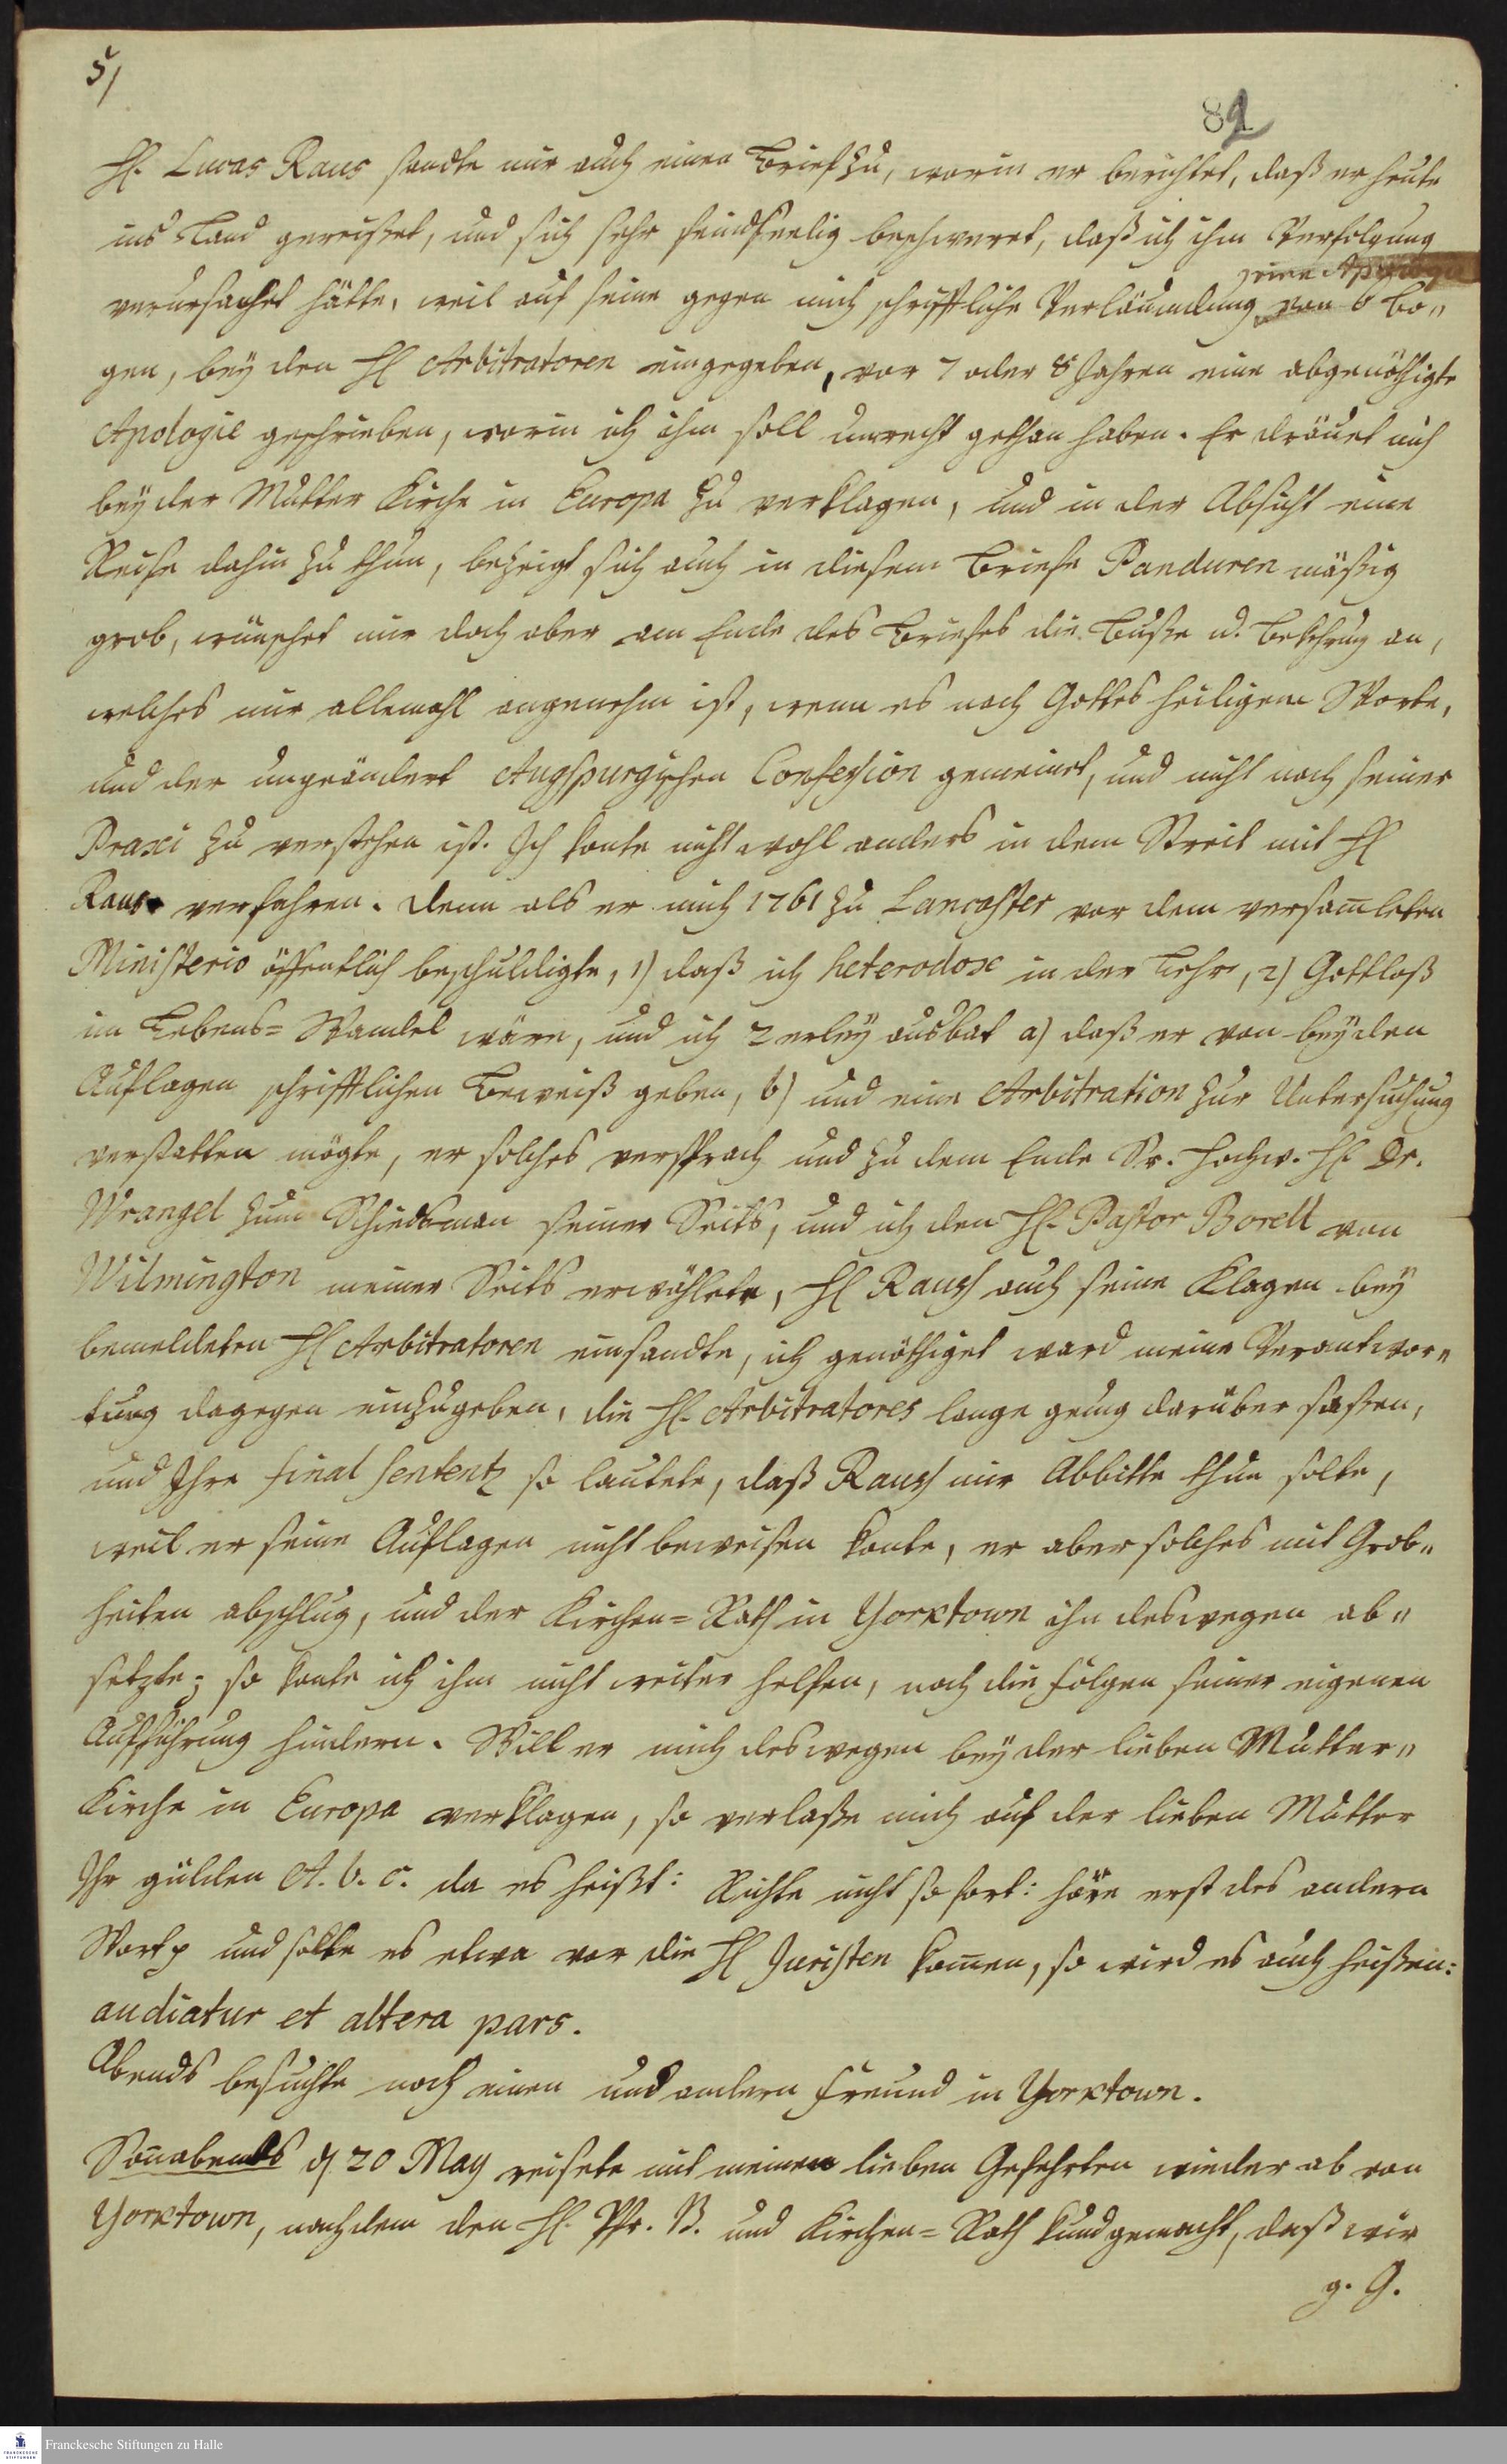 5/
82
H. Lucas Raus sandte mir auch einen Brief zu, worin er berichtet, daß er heute
ins Land gereißet, und sich sehr feindseelig beschweret, daß ich ihm Verfolgung
verursachet hätte, weil auf seine gegen mich schrifftliche Verläumdung von 6 Bo„
gen, bey den H Arbitratoren eingegeben, vor 7 oder 8 Jahren eine abgenöthigte
Apologie geschrieben, worin ich ihm soll unrecht gethan haben. Er dräuet mich
bey der Mutter Kirche in Europa zu verklagen, und in der Absicht eine
Reise dahin zu thun, bezeigt sich auch in diesem Briefe Panduren mäßig
grob, wünschet mir doch aber am Ende des Briefes die Buße u. Bekehrung an,
welches mir allemahl angenehm ist, wenn es nach Gottes heiligem Worte,
und der ungeändert Augspurgischen Confession gemeinet, und nicht nach seiner
Praxi zu verstehen ist. Ich konte nicht wohl anders in dem Streit mit H
Raus verfahren. Denn als er mich 1761 zu Lancaster vor dem versam̅leten
Ministerio öffentlich beschuldigte, 1) daß ich heterodox in der Lehre, 2) Gottloß
im Lebens= Wandel wäre, und ich 2 erley ausbat a) daß er von beyden
Auflagen schrifftlichen Beweiß geben, b) und eine Arbitration zur Untersuchung
verstatten mögte, er solches versprach und zu dem Ende Sr. Hochw. H Dr.
Wrangel zum Schiedsman seiner Seits, und ich den H. Pastor Borell von
Wilmington meiner Seits erwählete, H Rausch auch seine Klagen bey
bemeldeten H Arbitratoren einsandte, ich genöthiget ward meine Verantwor„
tung dagegen einzugeben, die H. Arbitratores lange genug darüber saßen,
und Ihre final sententz so lautete, daß Rausch mir Abbitte thun solte,
weil er seine Auflagen nicht beweisen konte, er aber solches mit Grob„
heiten abschlug, und der Kirchen= Rath in Yorktown ihn deswegen ab„
setzte; so konte ich ihm nicht weiter helfen, noch die Folgen seiner eigenen
Aufführung hindern. Will er mich deswegen bey der lieben Mutter„
Kirche in Europa verklagen, so verlaße mich auf der lieben Mutter
Ihr gülden A. b. c. da es heißt: Richte nicht so fort: höre erst des andern
Wort p und solte es etwa vor die H Juristen kom̅en, so wird es auch heißen:
audiatur et altera pars.
Abends besuchte noch einen und andern Freund in Yorktown.
Son̅abends d 20 May reisete mit meinen lieben Gefehrten wieder ab von
Yorktown, nachdem den H. Pfr. B. und Kirchen= Rath kund gemacht, daß wir
g. G.
Franckesche Stiftungen zu Halle